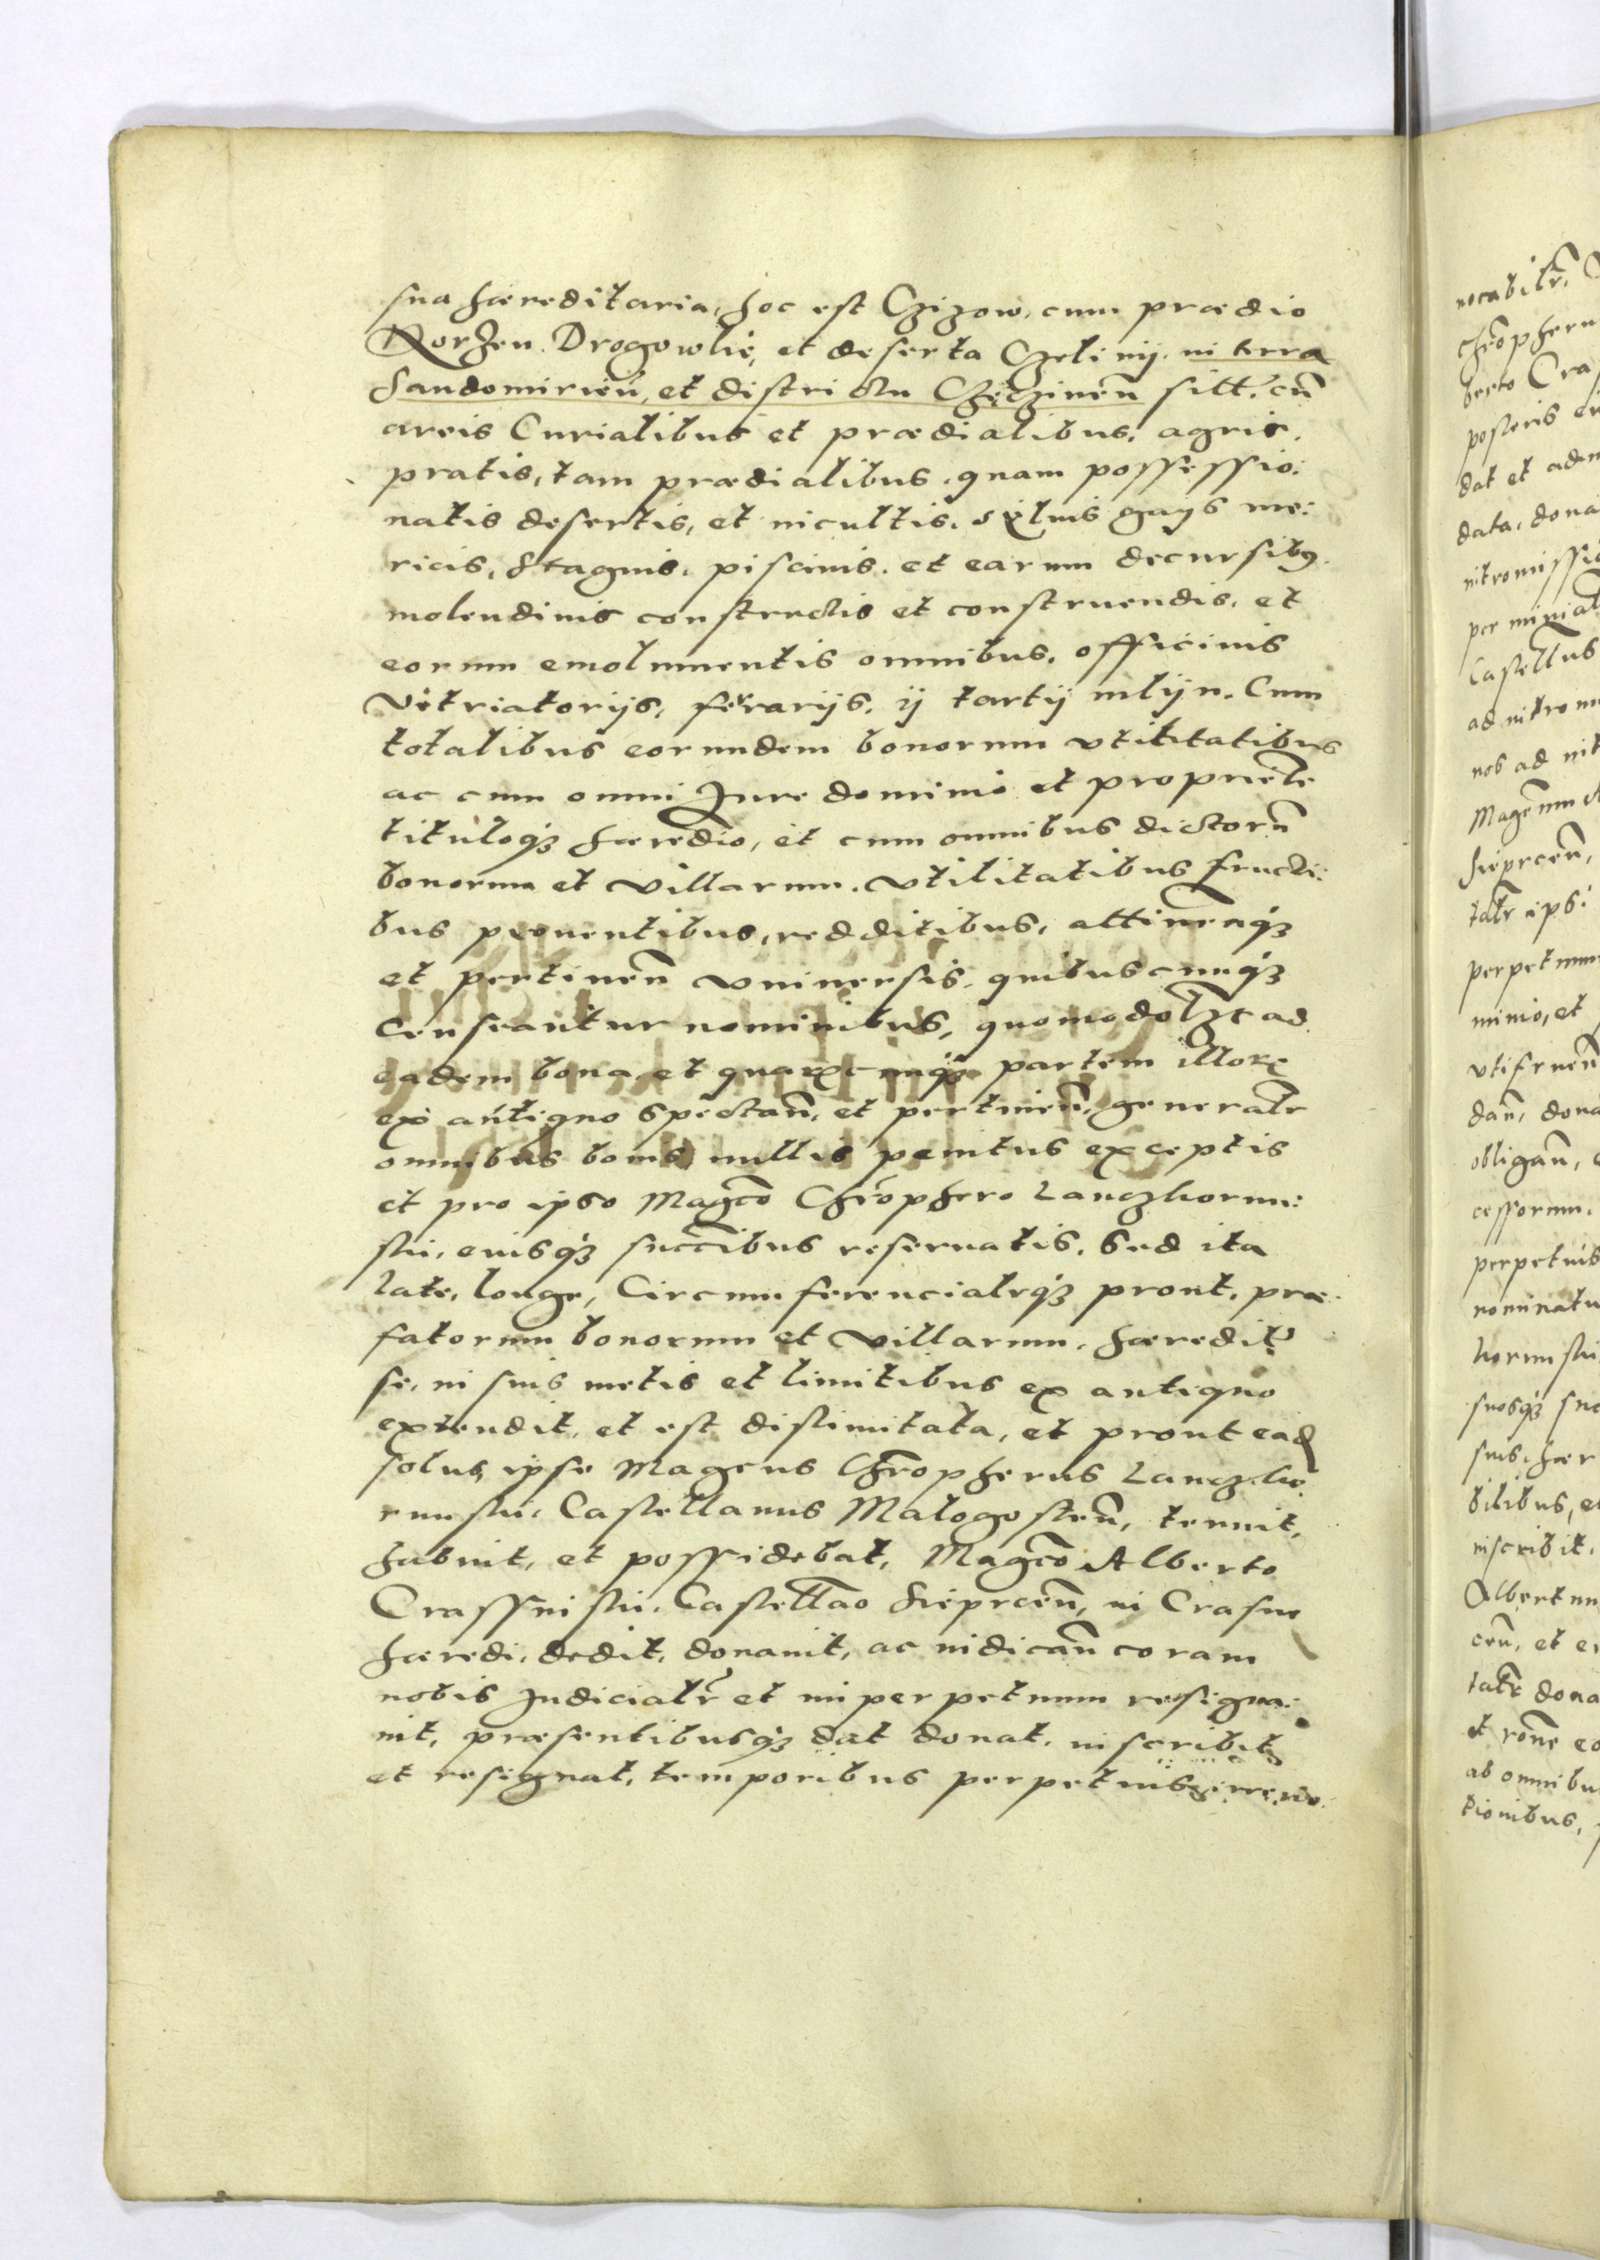 sua haereditaria, hoc est Czizow, cum praedio
Korzen Drogowlie, et deserta Czelinij, in terra
Sandomirien̄, et districtu Chęczinen̄ sitt. cū
areis Curialibus et praedialibus, agris,
pratis, tam praedialibus, quam possessio:
natis desertis, et incultis, sylvis gays me:
ricis, Stagnis, piscinis, et earum decursibus,
molendinis constructis et construendis, et
eorum emolumentis omnibus, officinis
Vitriatorijs, ferrarijs, ij tartij mlijn. Cum
totalibus eorundem bonorum vtilitatibus
ac cum omni Jure dominio et proprie͠te
tituloq₃ haeredio, et cum omnibus dictorū
bonorum et villarum, vtilitatibus fructi:
bus prouentibus, redditibus, attinen̄q₃
et pertinen̄ vniuersis, quibuscunq₃
censeantur nominibus, quomodol₃t ad
eadem bona et quamcunq₃ partem illorꝝ
ex antiquo spectan̄, et pertinen̄, generalr̄
omnibus bonis, nullis penitus exceptis
et pro ipso Magc̄o Chr̄ophero Lanczkorun:
ski, eiusq₃ succ̄ibus reseruatis. Sed ita
late, longe, Circumferencialrq₃ prout, prae
fatorum bonorum et villarum, haeredit͛
se, in suis metis et limitibus ex antiquo
extendit, et est distimitata, et prout ead
solus, ipse Magcus Chr̄opherus Lanczko
runski, Castellanus Malogosten̄, tenuit,
habuit, et possidebat, Magc̄o Alberto
Crassinski, Castellāo Sieprcen̄, in Crasne
haeredi, dedit, donauit, ac iudican̄ coram
nobis Judicialr̄ et in perpetuum resigna:
uit, praesentibusq₃ dat donat, inscribit,
et resignat, temporibus perpetuis, irreuo
nocabilr̄.
Chr̄opherum
berto Cras
posteris
dat et adm
data, dona
intromissio
Castellus
ad intromi
nos ad int
Magcum A
Sieprcen̄,
tat̄e ips
perpetuum
minio, et
vtifruen̄
dan̄, dona
obligan̄,
cessorum.
perpetuis
nominatu
korunski
suosq₃ suc
suis, haer
bilibus, et
inscribit.
Albertum
cen̄, et
tat̄e dona
et ron̄e eo
ab omnibu
tionibus,